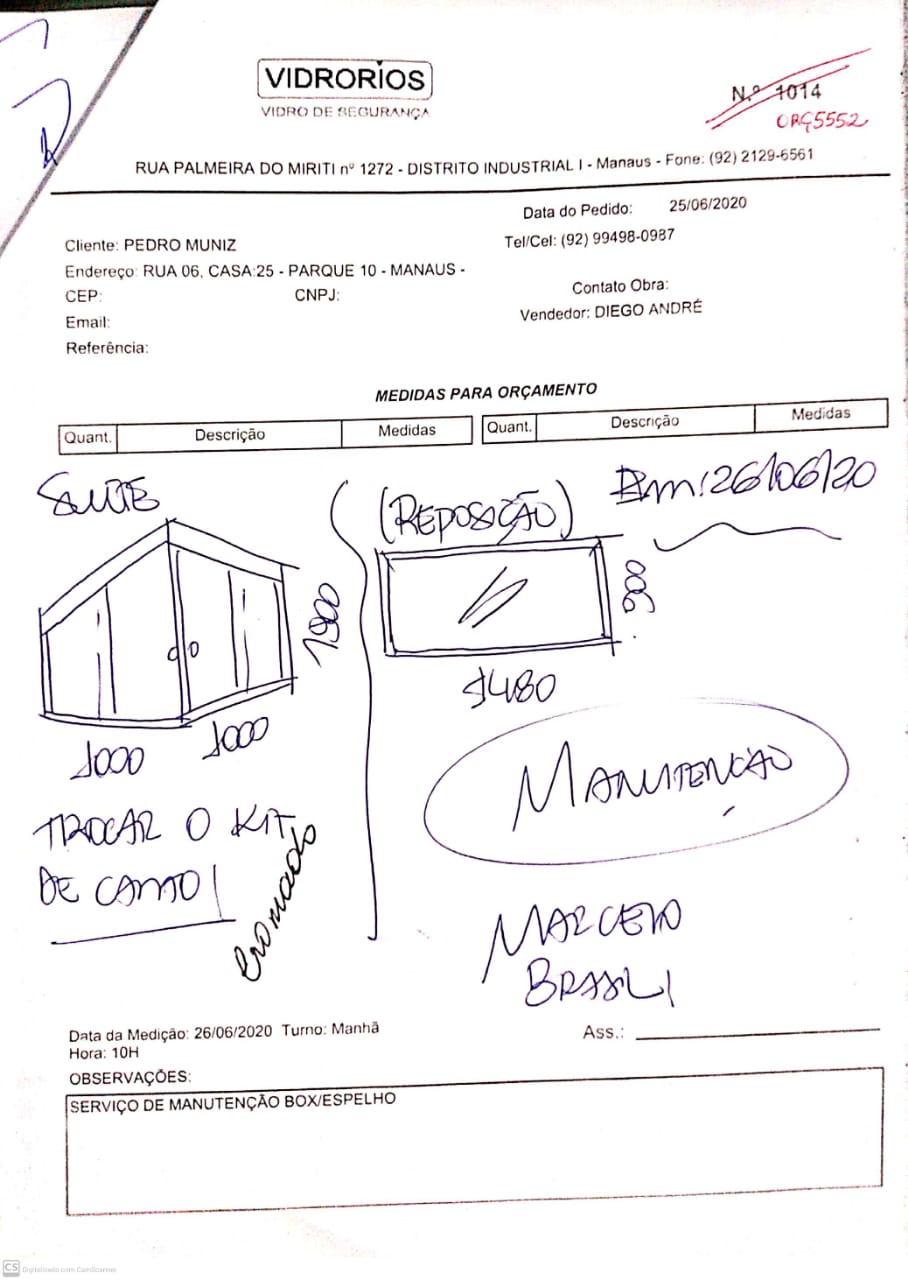 VIDRORIOS
VIDRO DE SEGURANÇA
N.º 1014
ORÇ5552
RUA PALMEIRA DO MIRITI nº 1272 - DISTRITO INDUSTRIAL I - Manaus - Fone: (92) 2129-6561
Data do Pedido: 25/06/2020
Cliente: PEDRO MUNIZ
Tel/Cel: (92) 99498-0987
Endereço: RUA 06, CASA:25 - PARQUE 10 - MANAUS -
CEP: CNPJ:
Contato Obra:
Email:
Vendedor: DIEGO ANDRÉ
Referência:
MEDIDAS PARA ORÇAMENTO
Quant. Descrição Medidas Quant. Descrição Medidas
SUITE
(REPOSIÇÃO)
Em: 26/06/20
1900
900
1480
1000 1000
MANUTENÇÃO
TROCAR O KIT
DE CANTO!
Cromado
MARCELO
BRASIL
Data da Medição: 26/06/2020 Turno: Manhã
Ass.:
Hora: 10H
OBSERVAÇÕES:
SERVIÇO DE MANUTENÇÃO BOX/ESPELHO
CS Digitalizado com CamScanner